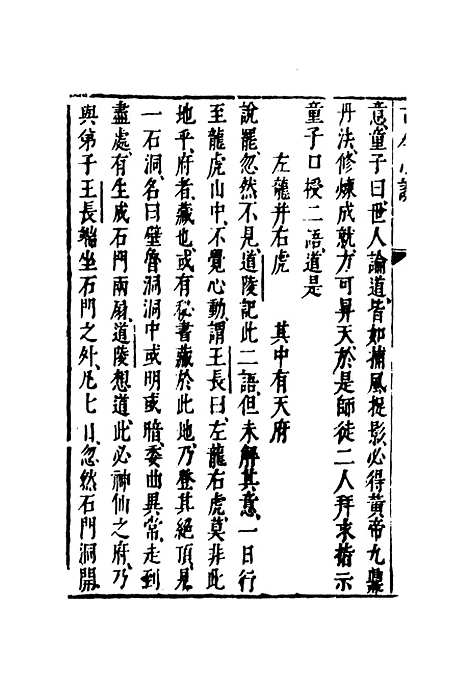 意、童子曰、世人論道、皆如捕風捉影、必得黃帝九鼎
丹法、修煉成就、方可昇天、於是師徒二人拜求指示
童子口授二語、道是
左龍并右虎　其中有天府
說罷忽然不見、道陵記此二語、但未解其意、一日行
至龍虎山中、不覺心動、謂王長曰、左龍右虎、莫非此
地乎、府者、藏也、或有秘書藏於此地、乃登其絕頂、見
一石洞、名曰壁魯洞、洞中或明或暗、委曲異常、走到
盡處、有生成石門兩扇、道陵想道、此必神仙之府、乃
與弟子王長端坐石門之外、凡七日、忽然石門洞開